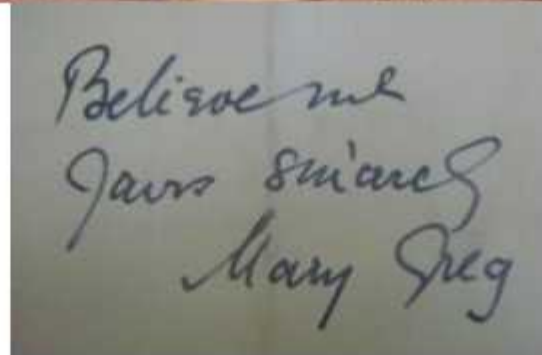 Believe me
Yours Sincerely
Mary Greg